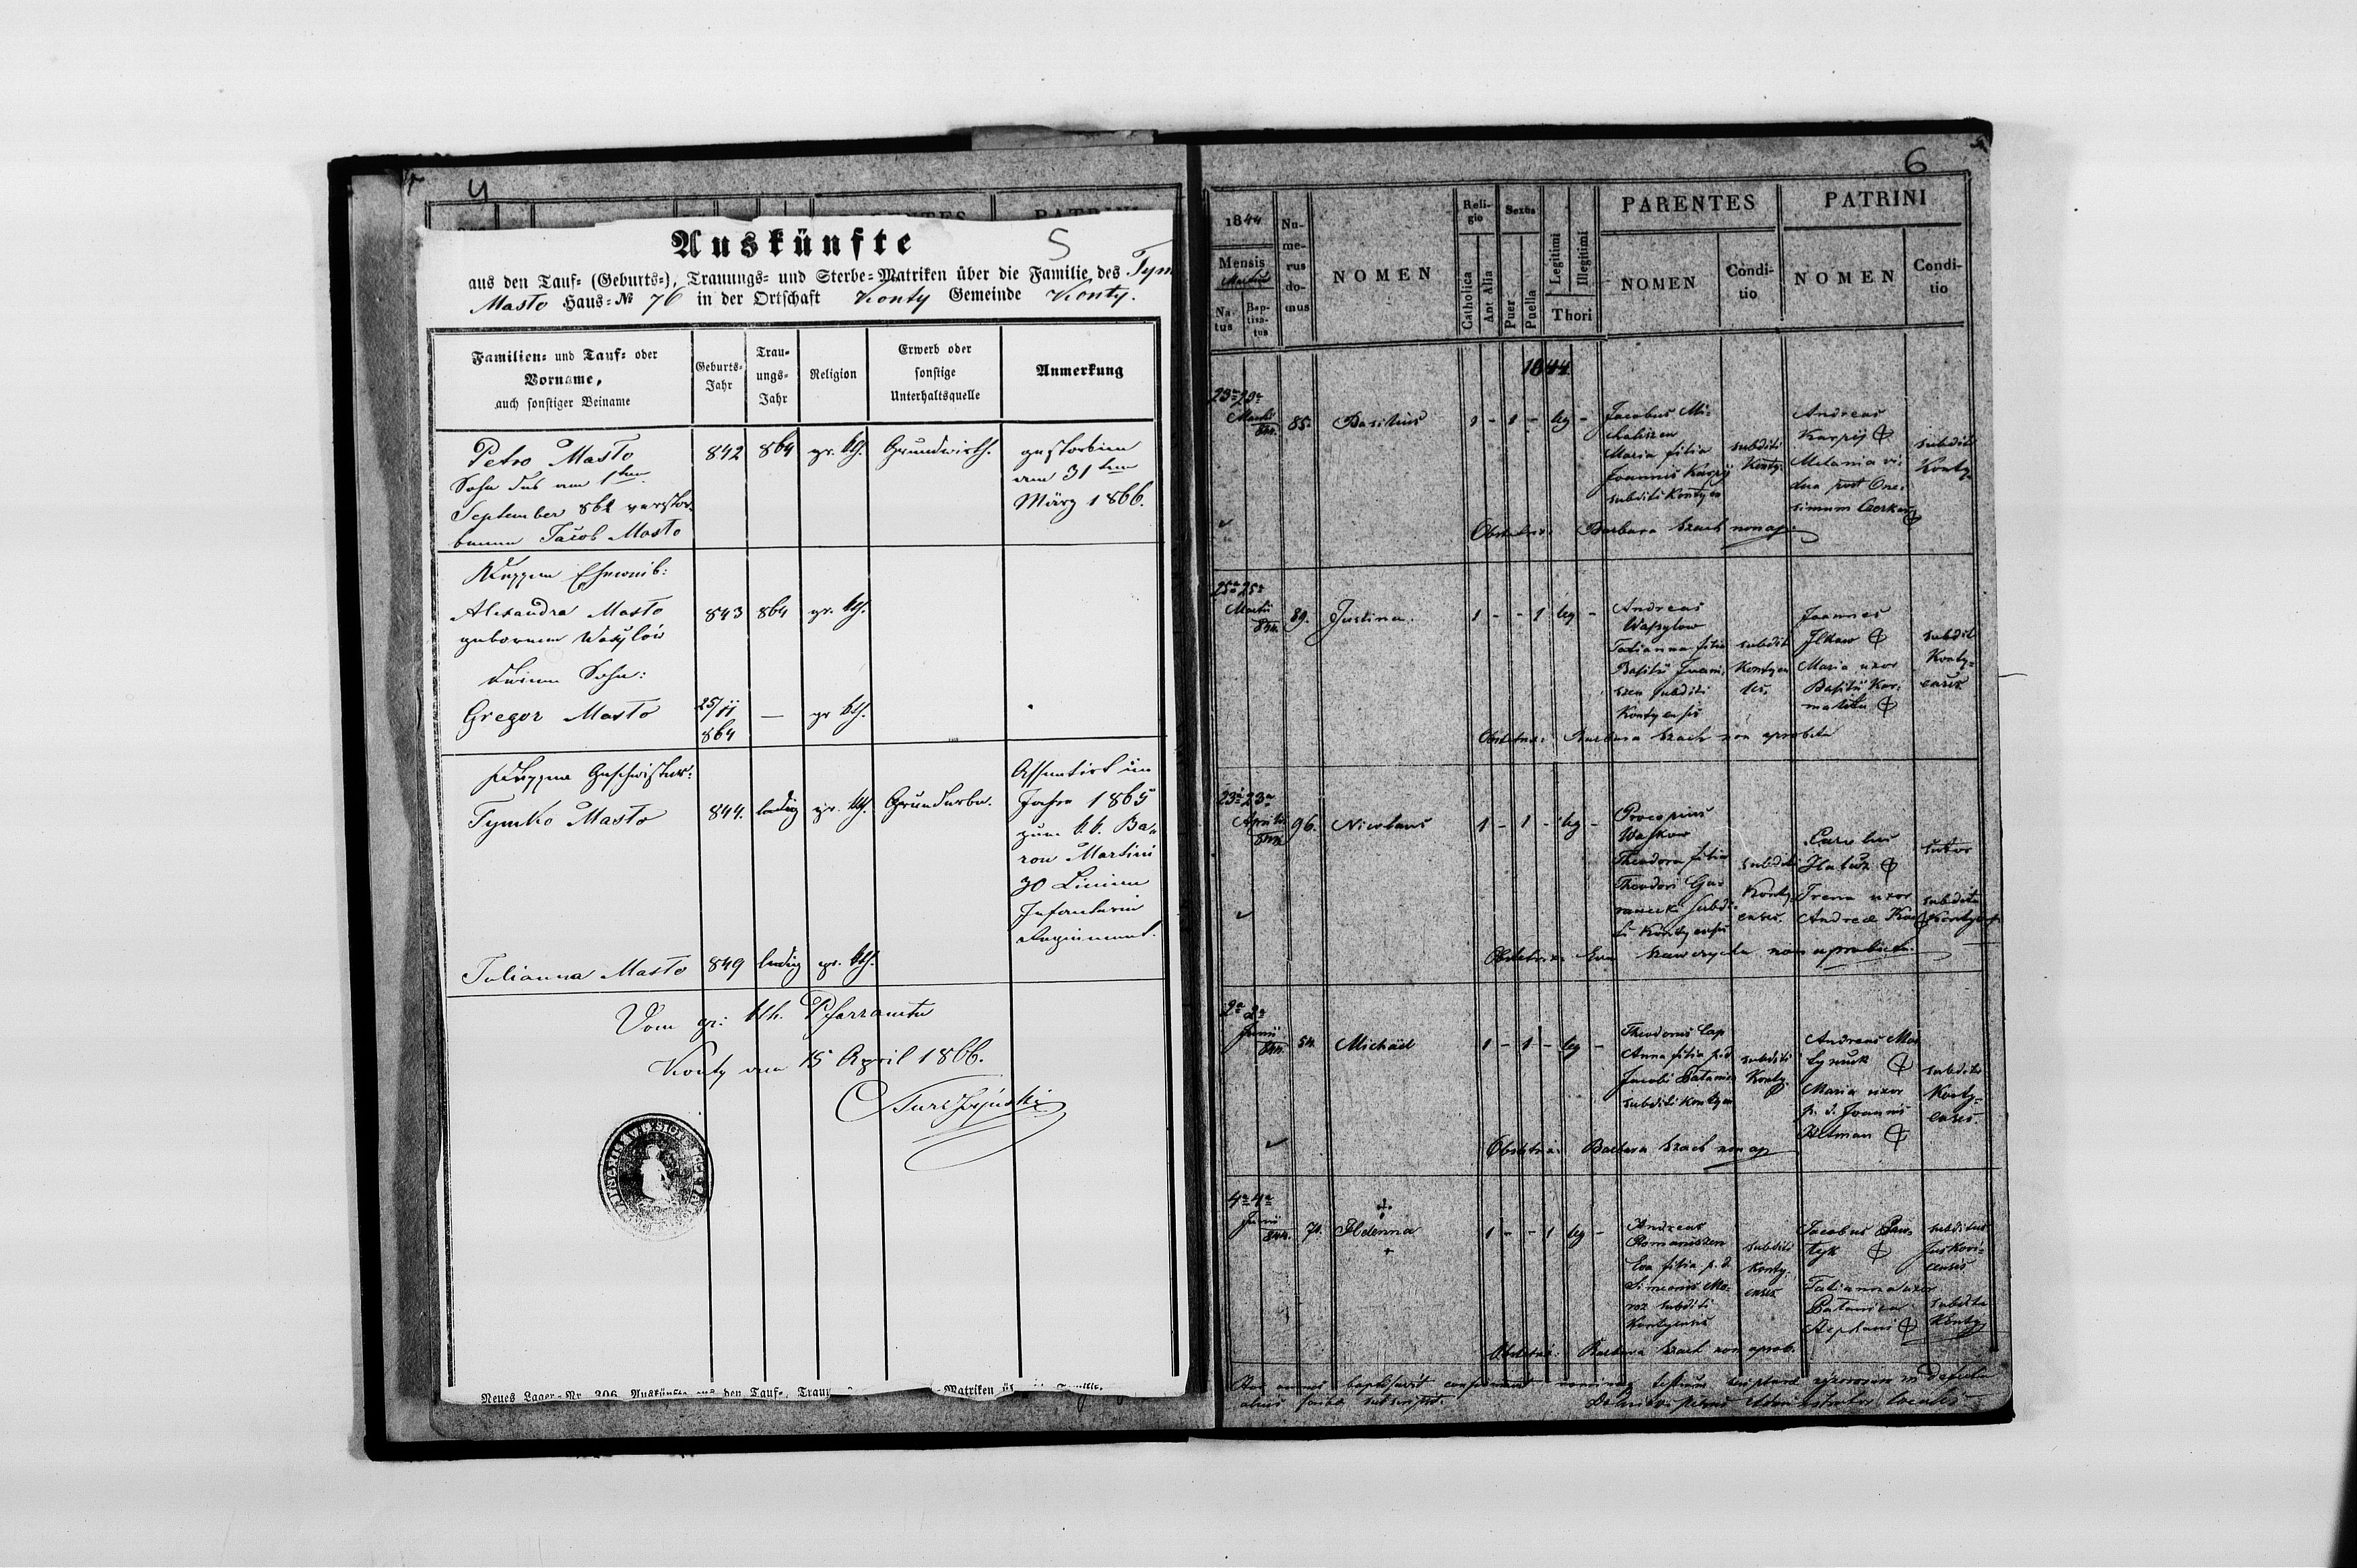 4
Auskünfte
5
aus den Tauf- (Geburts-), Trauungs- und Sterbe-Matriken über die Familie des Tym
Masto Haus-№ 76 in der Ortschaft Konty Gemeinde Konty.
Familien- und Tauf- oder
Vorname,
auch sonstiger Beiname
Geburts-
Jahr
Trau-
ungs-
Jahr
Religion
Erwerb oder
sonstige
Unterhaltsquelle
Anmerkung
Petro Masto 842 864 gr. kth. Grundwirth. gestorben
Sohn des am 1ten am 31ten
September 862 verstor- März 1866.
benen Jacob Masto
Dessen Eheweib:
Alexandra Masto 843 864 gr. kth.
geborene Wasylów
deren Sohn:
Gregor Masto 25/11 — gr kth.
864
dessen Geschwister: Assentirt im
Tymko Masto 844. ledig gr. kth. Grunderbe. Jahre 1865
zum k.k. Ba-
ron Martini
30 Linien
Infanterie
Regiment.
Julianna Masto 849 ledig gr. kth.
Vom gr: kth. Pfarramte
Konty am 15 April 1866.
Neues Lager-Nr. 306. Auskünfte aus den Tauf-, Trau
Matriken
6
1844
Mensis
Martius
Na-
tus
Bap-
tisa-
tus
Nu-
me-
rus
do-
mus
NOMEN
Reli-
gio
Catholica
Aut Alia
Sexus
Puer
Puella
Legitimi
Illegitimi
Thori
PARENTES
NOMEN
Condi-
tio
PATRINI
NOMEN
Condi-
tio
1844
23a 23a
Martii
844.
85. Basilius 1 - 1 - leg -
Jacobus Mi-
chaliszen
Maria filia
Joannis Karpij
subditi Kontyen
subditi
Konty-
Andreas
Karpij
Melania vi-
dua post One-
simum
subditi
Konty-
Obstetrix: Barbara Szach non ap.
25a 25a
Martii
844
89. Justina. 1 - - 1 leg -
Andreas
Wasylow
Tatianna filia
Basilii Iwani-
szen subditi
Kontyensis
subditi
Kontyen
ses.
Joannes
Ilkow
Maria uxor
Basilii Kor-
subditi
Konty-
enses
Obstetrix: Barbara Szach non aprobata
23a 23a
Aprilis
844
96. Nicolaus 1 - 1 - leg -
Procopius
Waskow
Theodora filia
Theodori
subdi-
ti Kontyensis
subditi
Konty-
enses.
Irena uxor
Andreæ
sutor
subdita
Obstetrix: Eva non aprobata
2a 2a
Junii
844.
54. Michael 1 - 1 - leg -
Theodorus Cap
Anna filia p.d.
Jacobi
subditi Kontyen
subditi
Konty-
Andreas
Maria uxor
p. d. Joannis
subditi
Konty-
enses.
Obstetrix: Barbara Szach non ap
4a 4a
Junii
844.
71. Helenna 1 - - 1 leg -
Andreas
Romaniszen
Eva filia p.d.
Simeonis Mo-
roz subditi
Kontyensis
subditi
Konty-
enses
Jacobus
Tatianna uxor
Stephani
subditus
subdita
Konty
Obstetrix: Barbara Szach non aprob.